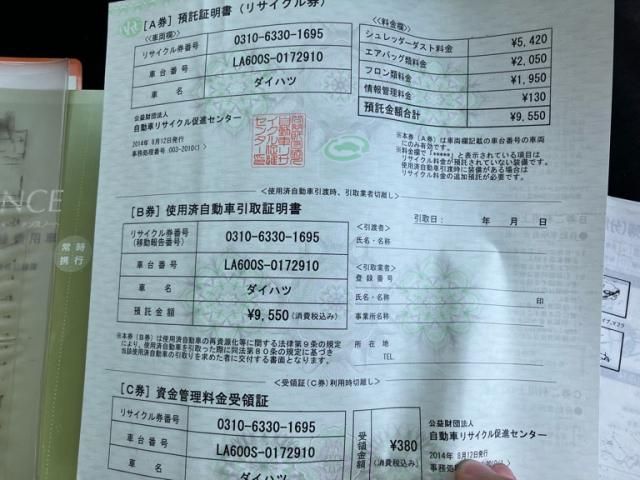 [A券] 預託証明書 (リサイクル券)
<車両欄>
リサイクル券番号 0310-6330-1695
車台番号 LA600S-0172910
車名 ダイハツ
公益財団法人
自動車リサイクル促進センター
2014年 8月12日発行
事務処理番号 (003-2010C)
<料金欄>
シュレッダーダスト料金 ¥5,420
エアバッグ類料金 ¥2,050
フロン類料金 ¥1,950
情報管理料金 ¥130
預託金額合計 ¥9,550
※本券(A券)は車両欄記載の車台番号の車両
にのみ有効です。
※料金欄で「*****」と表示されている項目は
リサイクル料金が預託されていない装備です。
使用済自動車引渡時に装備がある場合は
リサイクル料金の追加預託が必要です。
<使用済自動車引渡時、引取業者切離し>
[B券] 使用済自動車引取証明書
引取日: 年 月 日
リサイクル券番号
(移動報告番号) 0310-6330-1695
車台番号 LA600S-0172910
車名 ダイハツ
預託金額 ¥9,550 (消費税込み)
<引渡者>
氏名・名称
<引取業者>
登録番号
氏名・名称 印
事業所名称
所在地
TEL.
※本券(B券)は使用済自動車の再資源化等に関する法律第9条の規定
により、使用済自動車を引取った際に同法第80条の規定に基づき
当該使用済自動車の引取りを求めた者に交付する書面となります。
<受領証(C券)利用時切離し>
[C券] 資金管理料金受領証
リサイクル券番号 0310-6330-1695
車台番号 LA600S-0172910
車名 ダイハツ
受領金額 ¥380
(消費税込み)
公益財団法人
自動車リサイクル促進センター
2014年 8月12日発行
事務処理
NCE
常時
携行